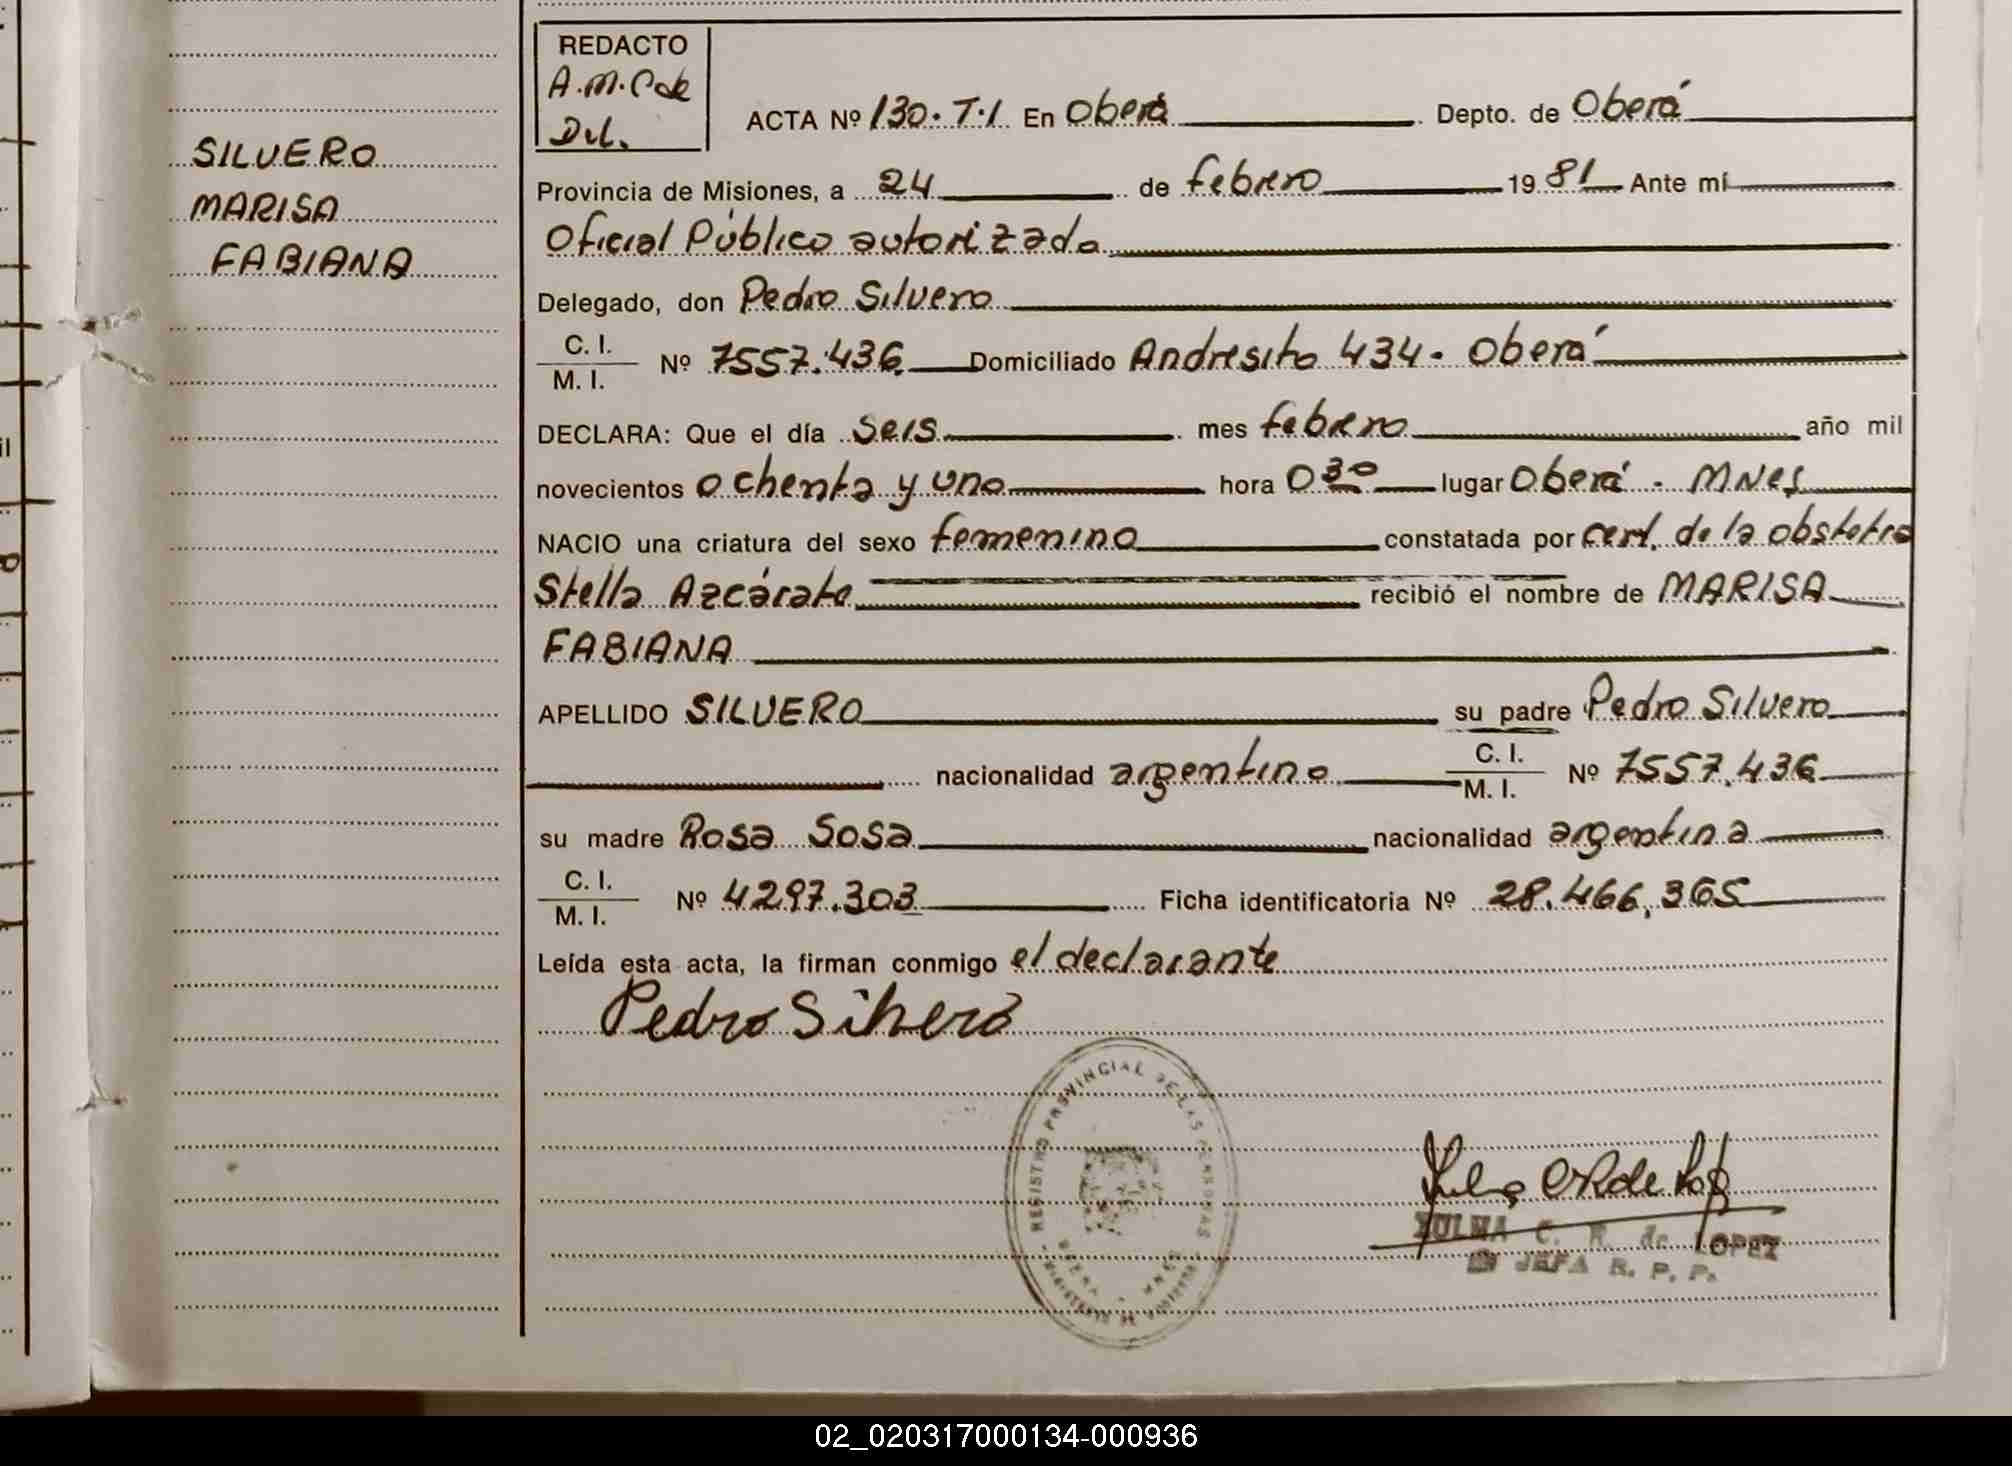 REDACTO
A.M.C de
Del.
SILVERO
MARISA
FABIANA
ACTA Nº 130. T.1 En Oberá Depto. de Oberá
Provincia de Misiones, a 24 de febrero 19 81 Ante mí
Oficial Público autorizado
Delegado, don Pedro Silvero
C. I.
M. I. Nº 7557.436 Domiciliado Andresito 434. Oberá
DECLARA: Que el día seis mes febrero año mil
novecientos ochenta y uno hora 0 30 lugar Oberá. MNes
NACIO una criatura del sexo femenino constatada por cert. de la obstetra
Stella Azcárate recibió el nombre de MARISA
FABIANA
APELLIDO SILVERO su padre Pedro Silvero
nacionalidad argentino C. I.
M. I. Nº 7557.436
su madre Rosa Sosa nacionalidad argentina
C. I.
M. I. Nº 4297.303 Ficha identificatoria Nº 28.466,365
Leída esta acta, la firman conmigo el declarante
Pedro Silvero
REGISTRO PROVINCIAL DE LAS PERSONAS
ZULMA C. R. de LOPEZ
JEFA R. P. P.
02_020317000134-000936